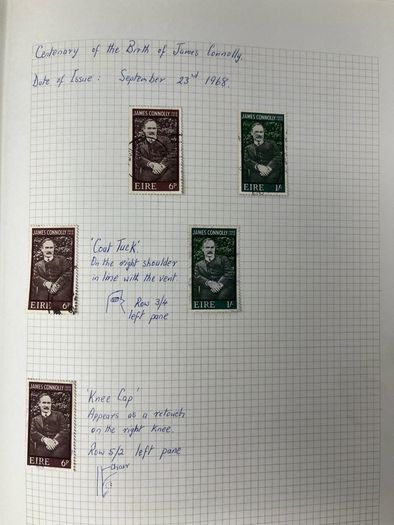 Centenary of the Birth of James Connolly.
Date of Issue: September 23rd 1968.
JAMES CONNOLLY
EIRE 6p
JAMES CONNOLLY
EIRE 1/-
JAMES CONNOLLY
EIRE 6p
'Coat Tuck'
On the right shoulder
in line with the vent.
Row 3/4
left pane
JAMES CONNOLLY
EIRE 1/-
JAMES CONNOLLY
EIRE 6p
'Knee Cap'
Appears as a retouch
on the right knee.
Row 5/2 left pane
chair